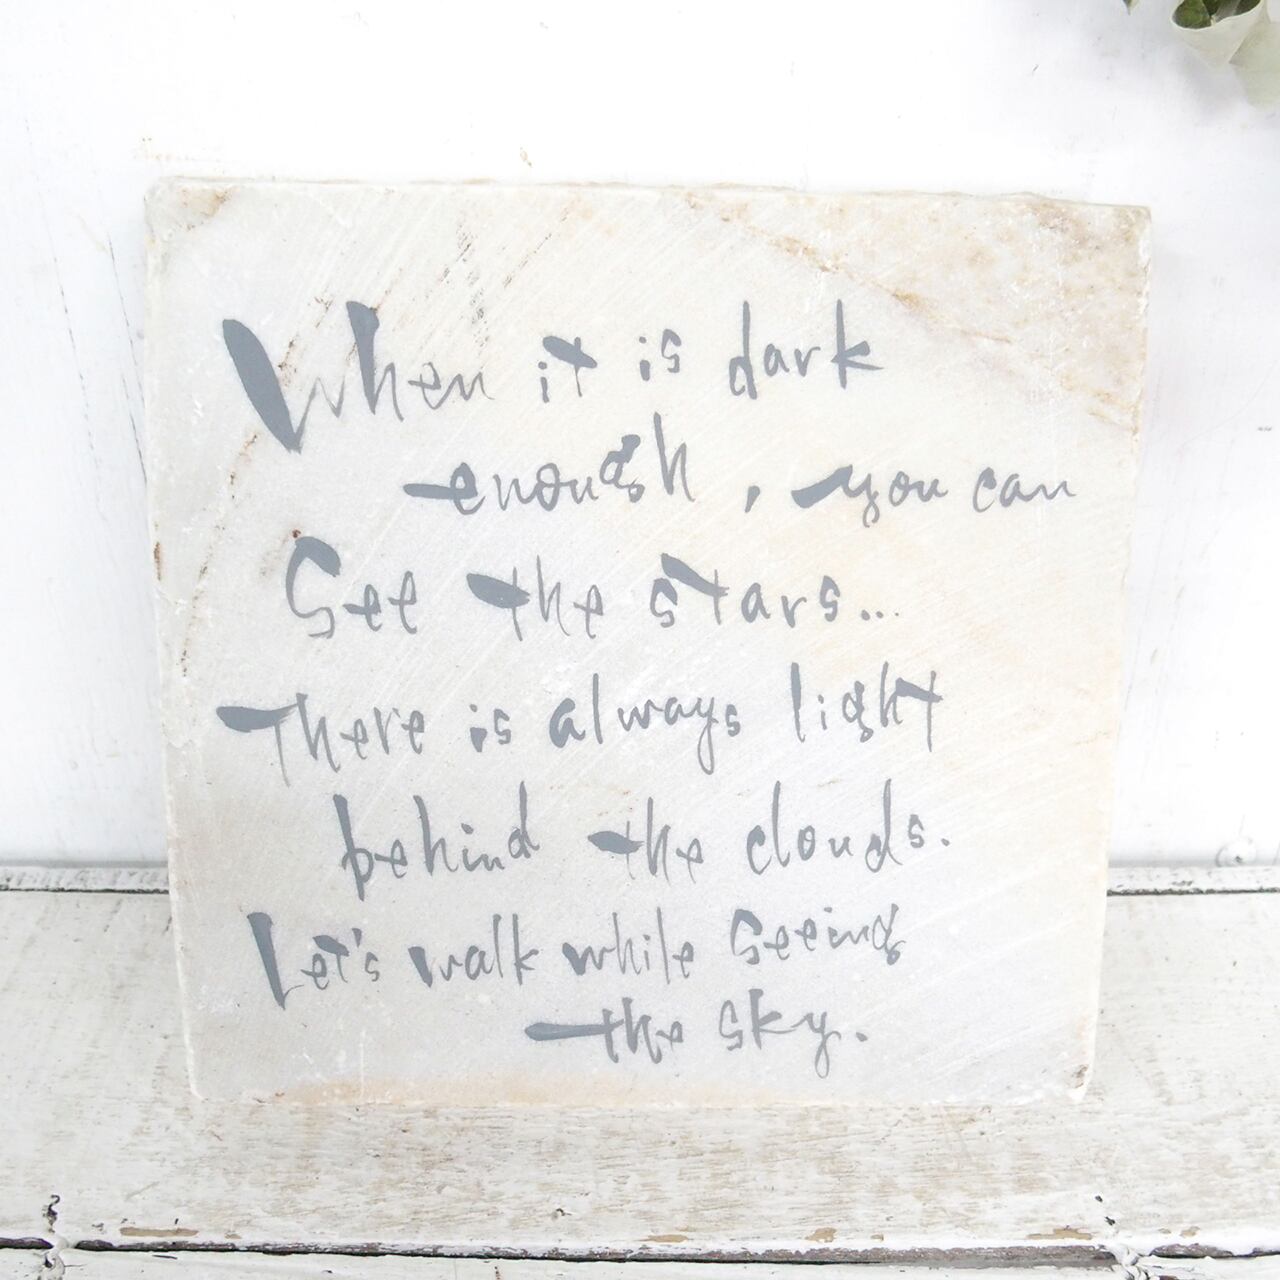 When it is dark
enough, you can
See the stars...
There is always light
behind the clouds.
Let's walk while Seeing
the sky.